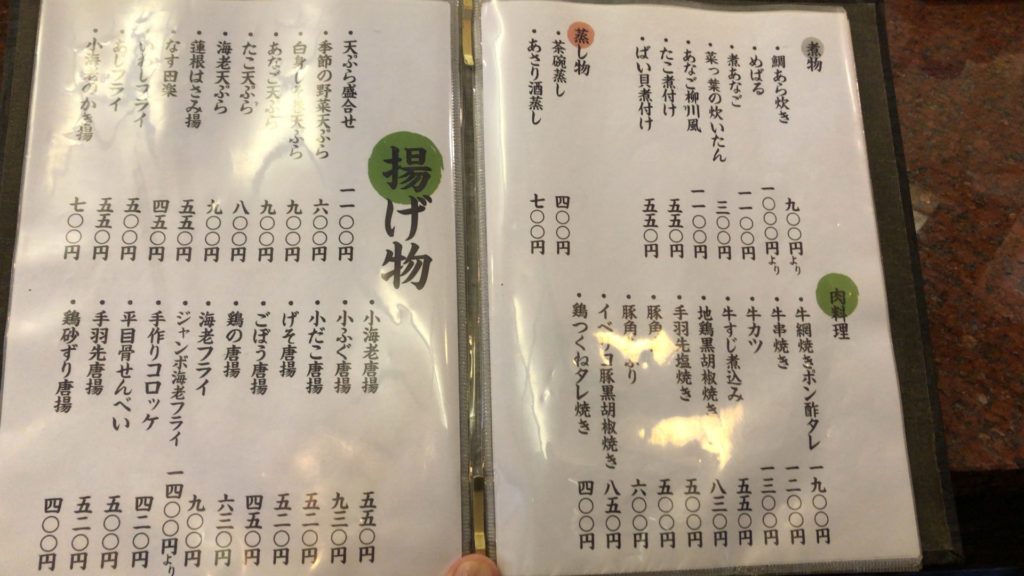 煮物
・鯛あら炊き 九〇〇円より
・めばる 一〇〇〇円より
・煮あなご 一一〇〇円
・菜っ葉の炊いたん 三〇〇円
・あなご柳川風 一一〇〇円
・たこ煮付け 五五〇円
・ばい貝煮付け 五五〇円
蒸し物
・茶碗蒸し 四〇〇円
・あさり酒蒸し 七〇〇円
肉料理
・牛網焼きポン酢タレ 一九〇〇円
・牛串焼き 一二〇〇円
・牛カツ 一三〇〇円
・牛すじ煮込み 五五〇円
・地鶏黒胡椒焼き 八三〇円
・手羽先塩焼き 五〇〇円
・豚角 五五〇円
・豚角 六〇〇円
・イベリコ豚黒胡椒焼き 八五〇円
・鶏つくねタレ焼き 四〇〇円
揚げ物
・天ぷら盛合せ 一一〇〇円
・季節の野菜天ぷら 六〇〇円
・白身 天ぷら 九〇〇円
・あなご天ぷら 九〇〇円
・たこ天ぷら 八〇〇円
・海老天ぷら 九〇〇円
・蓮根はさみ揚 五五〇円
・なす田楽 四五〇円
・いわしフライ 五〇〇円
・あじフライ 五五〇円
・小海老のかき揚 七〇〇円
・小海老唐揚 五五〇円
・小ふぐ唐揚 九三〇円
・小だこ唐揚 五二〇円
・げそ唐揚 五二〇円
・ごぼう唐揚 四五〇円
・鶏の唐揚 六三〇円
・海老フライ 九〇〇円
・ジャンボ海老フライ 一四〇〇円より
・手作りコロッケ 四二〇円
・平目骨せんべい 五〇〇円
・手羽先唐揚 五二〇円
・鶏砂ずり唐揚 四〇〇円